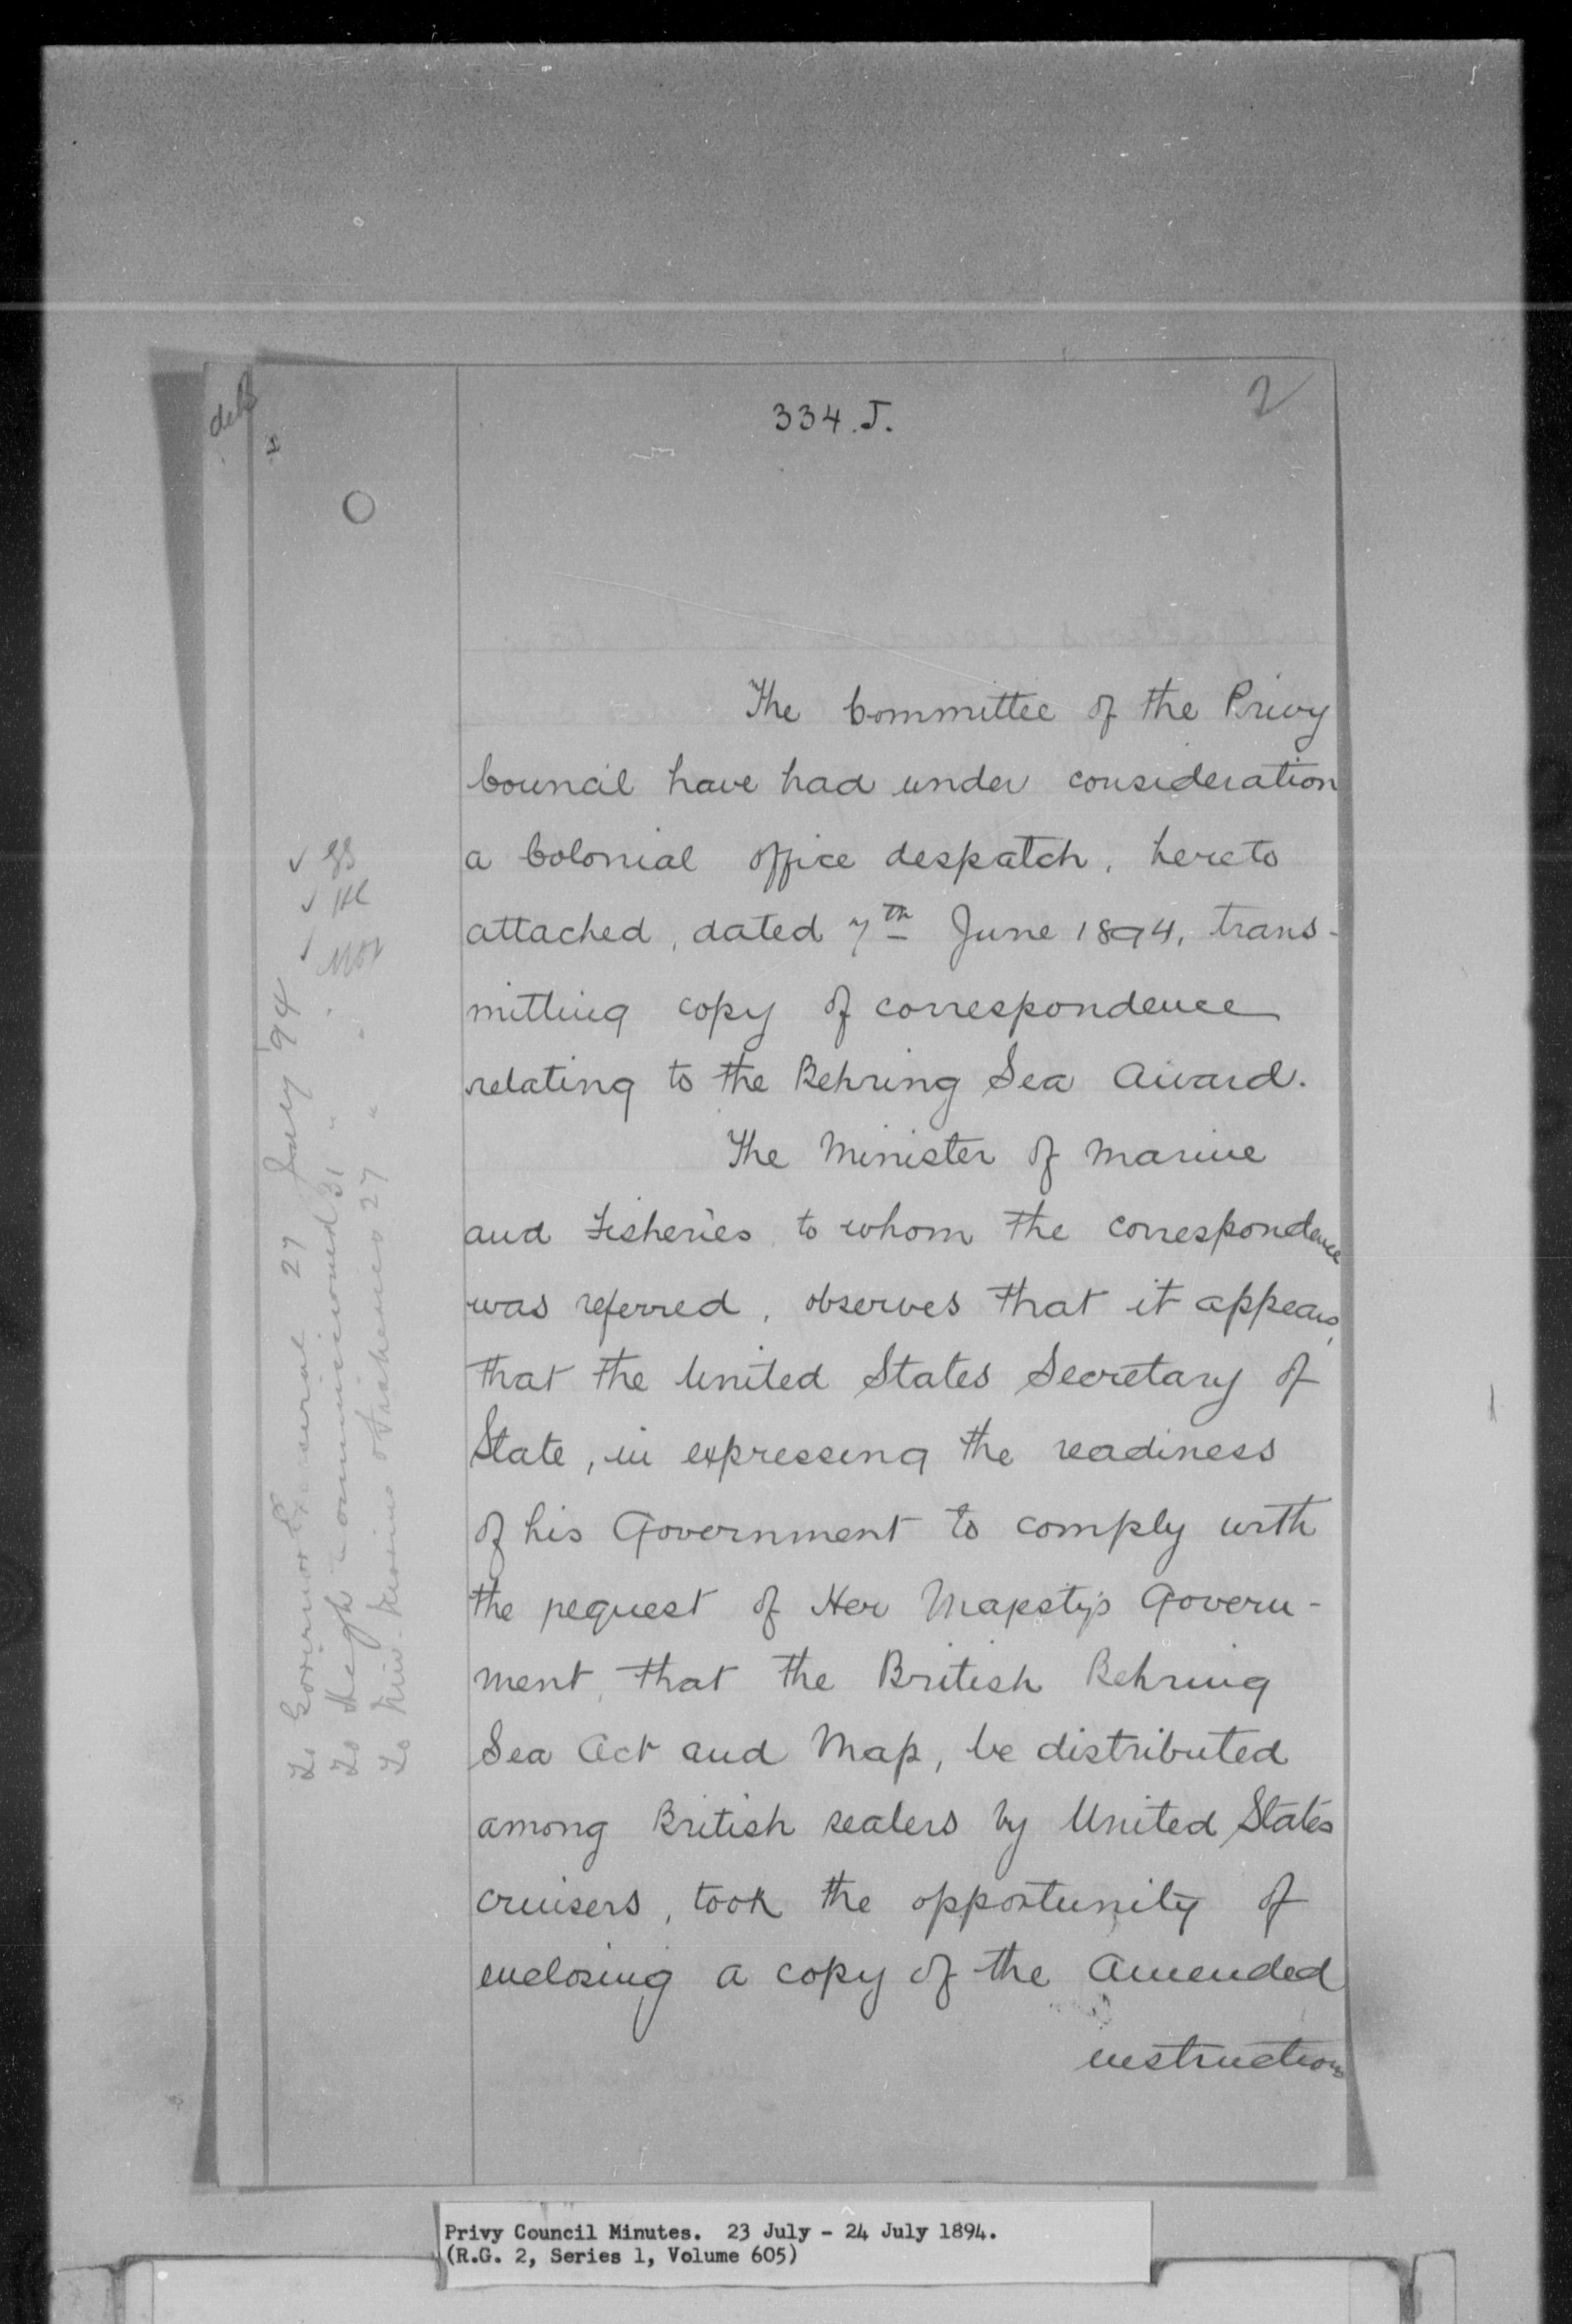 334.J.
2
The Committee of the Privy
Council have had under consideration
a Colonial Office despatch, hereto
attached, dated 7th June 1894, trans-
mitting copy of correspondence
relating to the Behring Sea Award.
The Minister of Marine
and Fisheries to whom the correspondence
was referred, observes that it appears,
that the United States Secretary of
State, in expressing the readiness
of his Government to comply with
the request of Her Majesty's Govern-
ment, that the British Behring
Sea Act and Map, be distributed
among British sealers by United States
cruisers, took the opportunity of
enclosing a copy of the Amended
instructions
To Governor General 27 July '94
To High Commissioner 31 "
To Min. Marine & Fisheries 27 " "
Privy Council Minutes. 23 July - 24 July 1894.
(R.G. 2, Series 1, Volume 605)